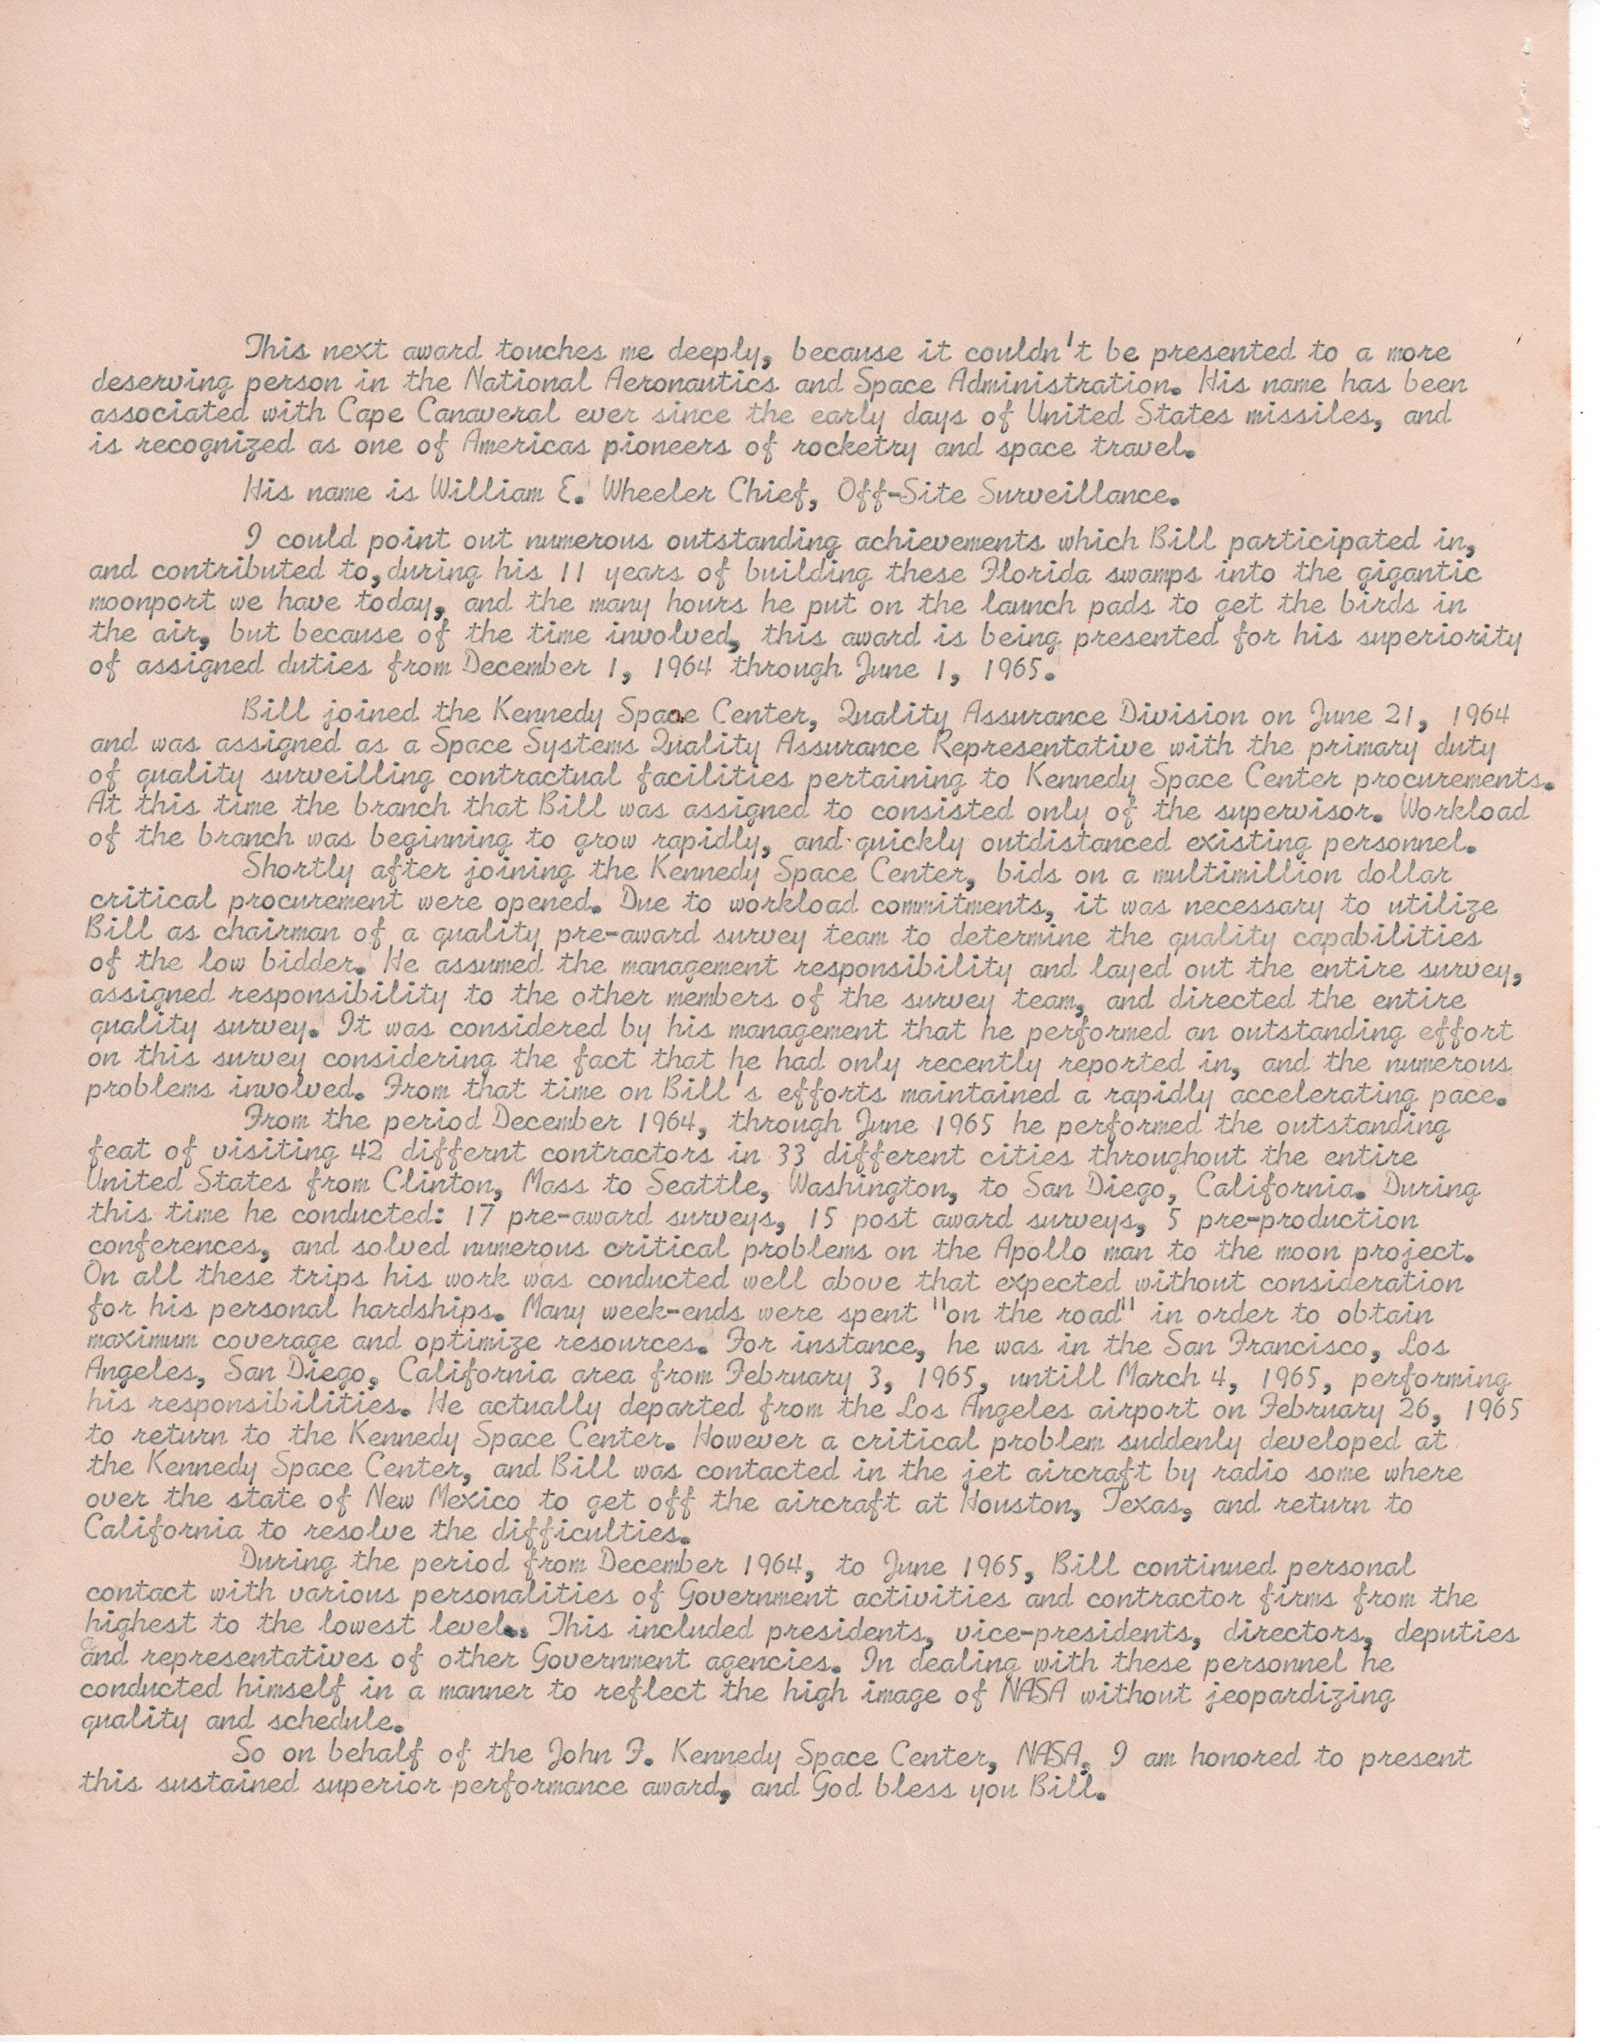 This next award touches me deeply, because it couldn't be presented to a more
deserving person in the National Aeronautics and Space Administration. His name has been
associated with Cape Canaveral ever since the early days of United States missiles, and
is recognized as one of Americas pioneers of rocketry and space travel.
His name is William E. Wheeler Chief, Off-Site Surveillance.
I could point out numerous outstanding achievements which Bill participated in,
and contributed to, during his 11 years of building these Florida swamps into the gigantic
moonport we have today, and the many hours he put on the launch pads to get the birds in
the air, but because of the time involved, this award is being presented for his superiority
of assigned duties from December 1, 1964 through June 1, 1965.
Bill joined the Kennedy Space Center, Quality Assurance Division on June 21, 1964
and was assigned as a Space Systems Quality Assurance Representative with the primary duty
of quality surveilling contractual facilities pertaining to Kennedy Space Center procurements.
At this time the branch that Bill was assigned to consisted only of the supervisor. Workload
of the branch was beginning to grow rapidly, and quickly outdistanced existing personnel.
Shortly after joining the Kennedy Space Center, bids on a multimillion dollar
critical procurement were opened. Due to workload commitments, it was necessary to utilize
Bill as chairman of a quality pre-award survey team to determine the quality capabilities
of the low bidder. He assumed the management responsibility and layed out the entire survey,
assigned responsibility to the other members of the survey team, and directed the entire
quality survey. It was considered by his management that he performed an outstanding effort
on this survey considering the fact that he had only recently reported in, and the numerous
problems involved. From that time on Bill's efforts maintained a rapidly accelerating pace.
From the period December 1964, through June 1965 he performed the outstanding
feat of visiting 42 differnt contractors in 33 different cities throughout the entire
United States from Clinton, Mass to Seattle, Washington, to San Diego, California. During
this time he conducted: 17 pre-award surveys, 15 post award surveys, 5 pre-production
conferences, and solved numerous critical problems on the Apollo man to the moon project.
On all these trips his work was conducted well above that expected without consideration
for his personal hardships. Many week-ends were spent "on the road" in order to obtain
maximum coverage and optimize resources. For instance, he was in the San Francisco, Los
Angeles, San Diego, California area from February 3, 1965, untill March 4, 1965, performing
his responsibilities. He actually departed from the Los Angeles airport on February 26, 1965
to return to the Kennedy Space Center. However a critical problem suddenly developed at
the Kennedy Space Center, and Bill was contacted in the jet aircraft by radio some where
over the state of New Mexico to get off the aircraft at Houston, Texas, and return to
California to resolve the difficulties.
During the period from December 1964, to June 1965, Bill continued personal
contact with various personalities of Government activities and contractor firms from the
highest to the lowest level. This included presidents, vice-presidents, directors, deputies
and representatives of other Government agencies. In dealing with these personnel he
conducted himself in a manner to reflect the high image of NASA without jeopardizing
quality and schedule.
So on behalf of the John F. Kennedy Space Center, NASA, I am honored to present
this sustained superior performance award, and God bless you Bill.